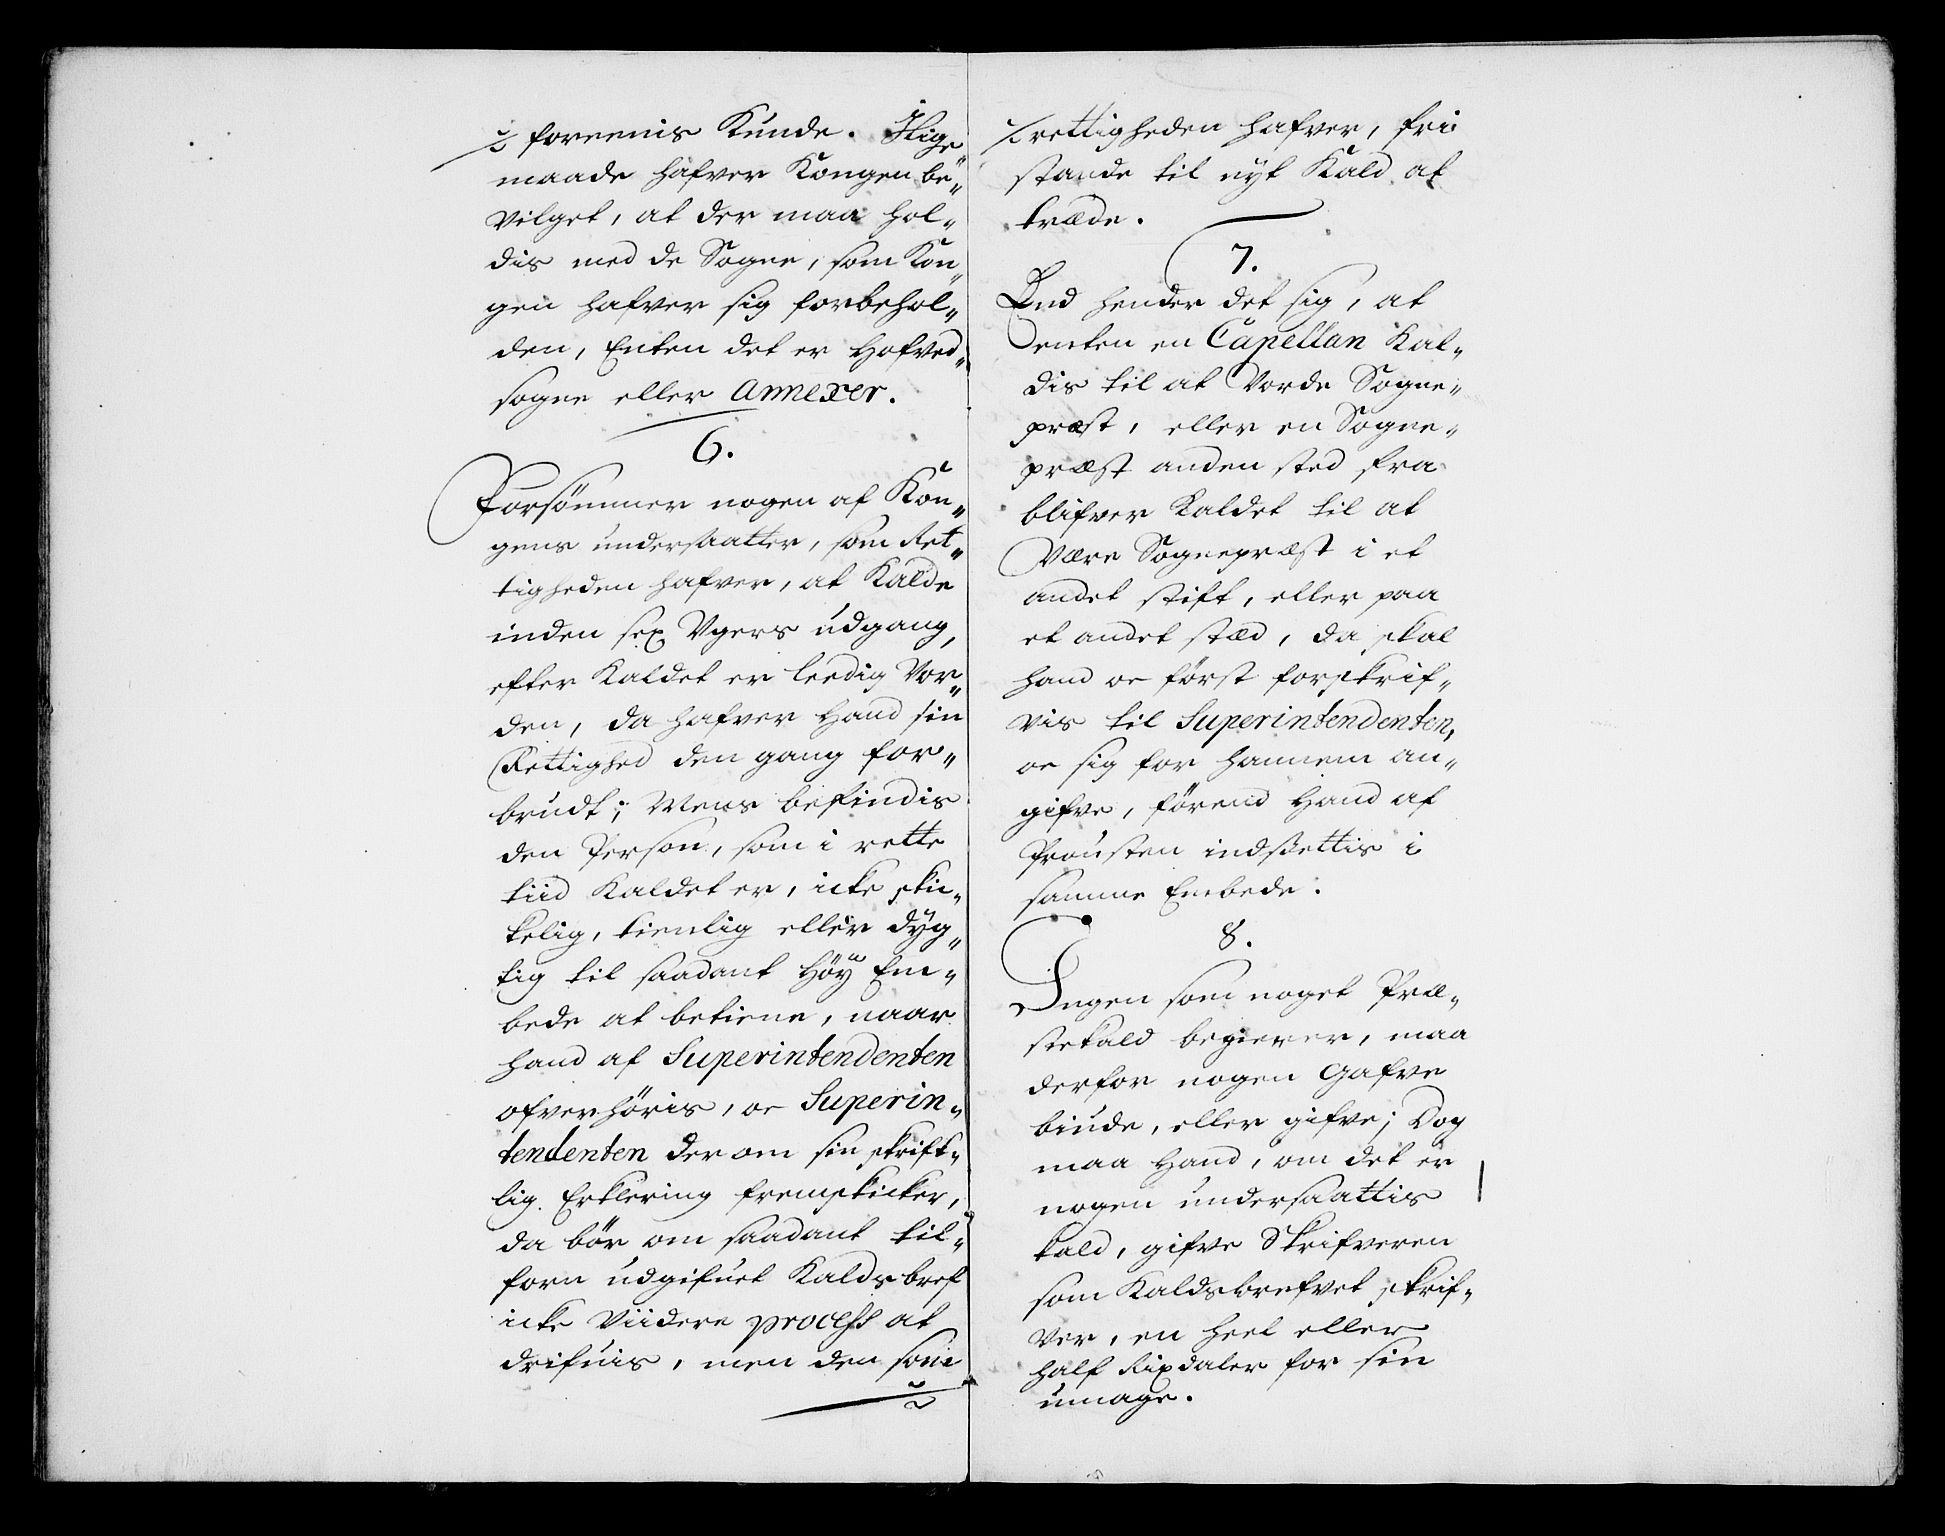 ⁒ foreenis Kunde. Slige
maade hafver Kongen be„
vilget, at der maa hol„
dis med de Sogne, som Kon„
gen hafver sig forbehol„
den, Enten det er Hofved„
sogne eller Annexer.
6.
Forsømmer nogen af Kon„
gens undersaatter, som Ret„
tigheden hafver, at Kalde
inden sex Vgers udgang,
efter Kaldet er leedig Vor„
den, da hafver Hand sin
Rettighed den gang for„
brudt; Mens befindis
den Person, som i rette
tiid Kaldet er, icke skic„
kelig, tienlig eller dyg„
tig til saadant Høy Em„
bede at betiene, naar
hand af Superintendenten
ofverhøris, oc Superin„
tendenten der om sin skrift„
lig Erklering fremskicker,
da bør om saadant til„
forn udgifuet Kaldsbref
icke Viidere process at
drifuis, men den som
⁒ rettigheden hafver, fri
stande til nyt Kald at
træde.
7.
End hender det sig, at
enten en Capellan Kal„
dis til at Vorde Sogne„
præst, eller en Sogne„
præst anden sted fra
blifver Kaldet til at
Være Sognepræst i et
andet stift, eller paa
et andet stæd, da skal
hand oc først forskrif„
vis til Superintendenten,
oc sig for hannem an„
gifve, førend Hand af
Prousten indsettis i
samme Embede.
8.
Ingen som noget Præ„
stekald begierer, maa
derfor nogen Gafve
biude, eller gifve; Dog
maa Hand, om det er
nogen undersaattis
kald, gifve Skrifveren
som Kaldsbrefvet skrif„
ver, en heel eller
half Rixdaler for sin
umage.